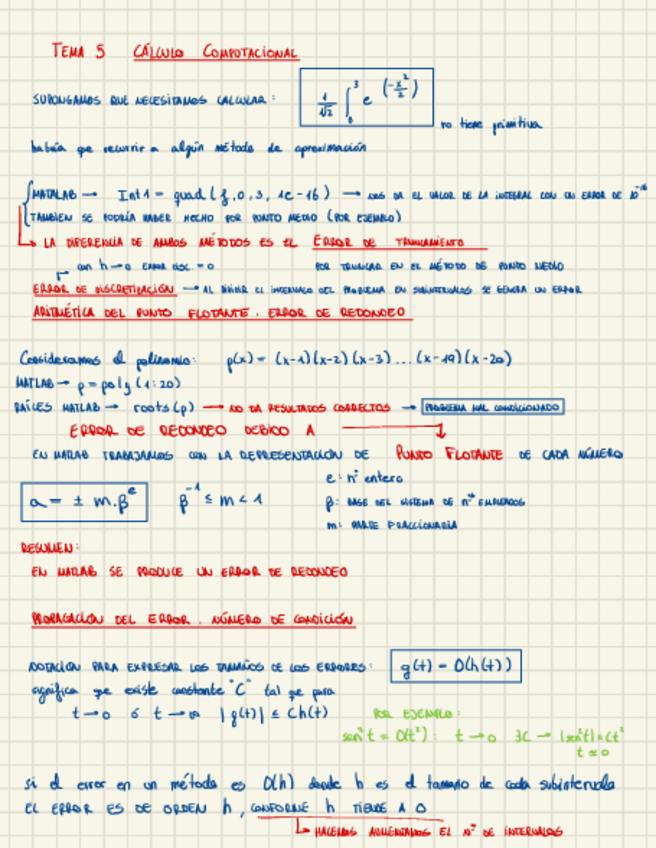 TEMA 5 CÁLCULO COMPUTACIONAL
SUPONGAMOS QUE NECESITAMOS CALCULAR: 1/√2 ∫₀³ e^(-x²/2)
no tiene primitiva
habría que recurrir a algún método de aproximación
MATLAB → Int1 = quad(f,0,3,1e-16) → nos da el valor de la integral con un error de 10^-16
TAMBIÉN SE PODRÍA HABER HECHO POR PUNTO MEDIO (POR EJEMPLO)
↳ LA DIFERENCIA DE AMBOS MÉTODOS ES EL ERROR DE TRUNCAMIENTO
con h→0 ERROR DISC. = 0 POR TRUNCAR EN EL MÉTODO DE PUNTO MEDIO
ERROR DE DISCRETIZACIÓN → AL DIVIDIR EL INTERVALO DEL PROBLEMA EN SUBINTERVALOS SE GENERA UN ERROR
ARITMÉTICA DEL PUNTO FLOTANTE. ERROR DE REDONDEO
Consideramos el polinomio: p(x) = (x-1)(x-2)(x-3)...(x-19)(x-20)
MATLAB → p = poly(1:20)
RAÍCES MATLAB → roots(p) → NO DA RESULTADOS CORRECTOS → PROBLEMA MAL CONDICIONADO
ERROR DE REDONDEO DEBIDO A
EN MATLAB TRABAJAMOS CON LA REPRESENTACIÓN DE PUNTO FLOTANTE DE CADA NÚMERO
e: nº entero
a = ± m.β^e β^-1 ≤ m < 1 β: BASE DEL SISTEMA DE nºs EMPLEADOS
m: PARTE FRACCIONARIA
RESUMEN:
EN MATLAB SE PRODUCE UN ERROR DE REDONDEO
PROPAGACIÓN DEL ERROR. NÚMERO DE CONDICIÓN
NOTACIÓN PARA EXPRESAR LOS TAMAÑOS DE LOS ERRORES: g(t) = O(h(t))
significa que existe constante "C" tal que para
t→0 ó t→∞ |g(t)| ≤ Ch(t)
POR EJEMPLO:
sen²t = O(t²): t→0 ∃C → |sen²t| ≤ Ct²
t≈0
si el error en un método es O(h) donde h es el tamaño de cada subintervalo
EL ERROR ES DE ORDEN h, CONFORME h TIENDE A 0
↳ HACEMOS AUMENTAMOS EL nº DE INTERVALOS